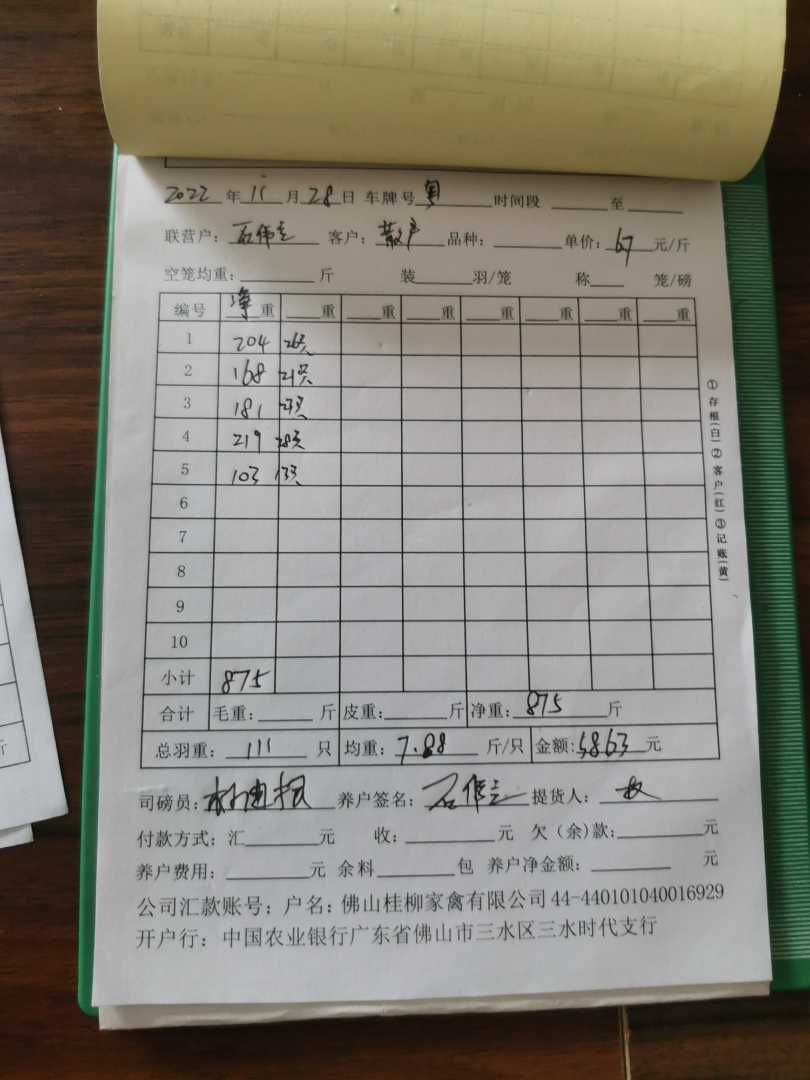 2022年11月28日 车牌号粤 时间段 至
联营户：石伟立 客户：散户 品种： 单价：6.7 元/斤
空笼均重： 斤 装 羽/笼 称 笼/磅
编号 净重 重 重 重 重 重 重 重
1 204 26只
2 168 21只
3 181 23只
4 219 28只
5 103 13只
6
7
8
9
10
小计 875
合计 毛重： 斤 皮重： 斤 净重：875 斤
总羽重：111 只 均重：7.88 斤/只 金额：5863 元
司磅员： 养户签名：石伟立 提货人：
付款方式：汇 元 收： 元 欠（余）款： 元
养户费用： 元 余料 包 养户净金额： 元
公司汇款账号：户名：佛山桂柳家禽有限公司44-440101040016929
开户行：中国农业银行广东省佛山市三水区三水时代支行
①存根（白）②客户（红）③记账（黄）
斤